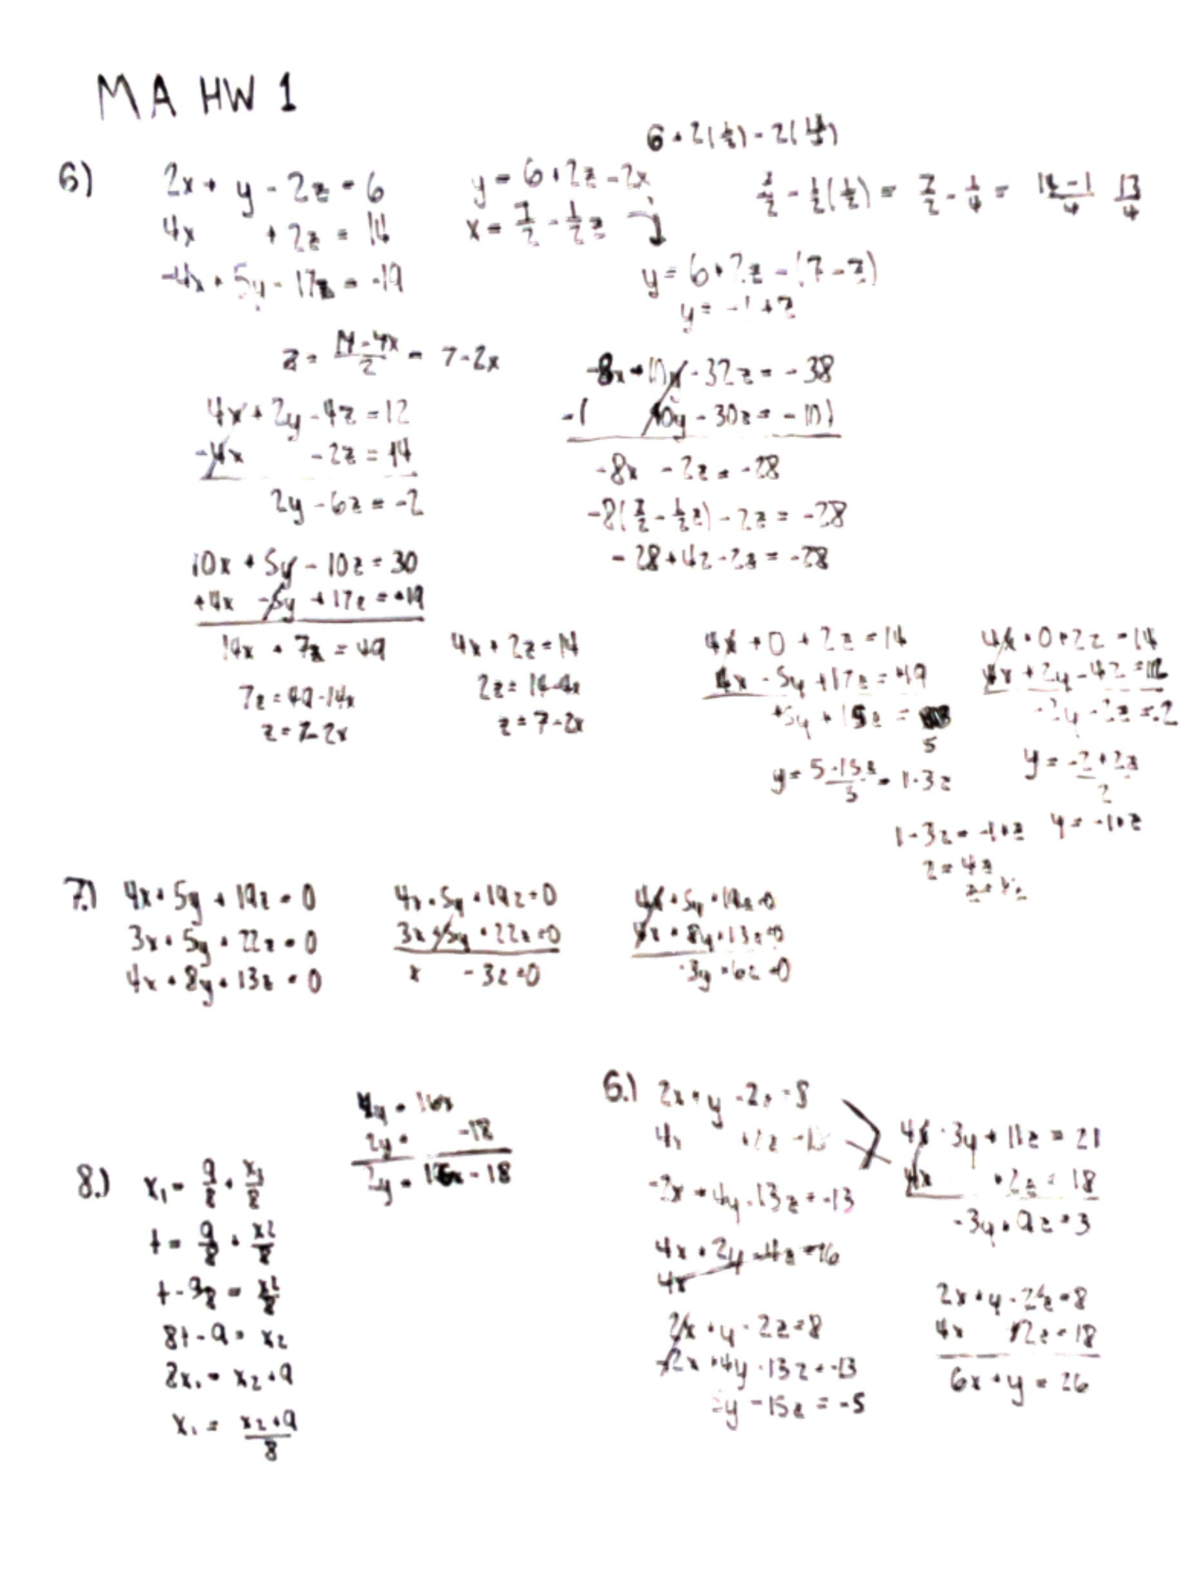 MA HW 1
6)
2x + y - 2z = 6
4x + 2z = 14
-4x + 5y - 17z = -19
y = 6 + 2z - 2x
x = 7/2 - 1/2 z
7/2 - 1/2(1/2) = 7/2 - 1/4 = 14-1/4 13/4
y = 6 + 2z - (7 - z)
z = 14-4x/2 = 7 - 2x
4x + 2y - 4z = 12
-4x - 2z = 14
2y - 6z = -2
-8x + 10y - 32z = -38
-1 10y - 30z = -10)
-8x - 2z = -28
-8(7/2 - 1/2 z) - 2z = -28
-28 + 4z - 2z = -28
10x + 5y - 10z = 30
+4x - 5y + 17z = +19
14x + 7z = 49
7z = 49 - 14x
z = 7 - 2x
4x + 2z = 14
2z = 14 - 4x
z = 7 - 2x
4x + 0 + 2z = 14
4x - 5y + 17z = +19
5
y = 5-15z/5 = 1 - 3z
4x + 0 + 2z = 14
4x + 2y - 4z = 12
-2y - 2z = 2
y = -2+2z/2
y = -1 + z
1 - 3z = -1 + z
2 = 4z
7.)
4x + 5y + 19z = 0
3x + 5y + 22z = 0
4x + 8y + 13z = 0
4x + 5y + 19z = 0
3x + 5y + 22z = 0
x - 3z = 0
4x + 5y + 19z = 0
4x + 8y + 13z = 0
-3y + 6z = 0
4y = 16x
2y = -18
2y = 16x - 18
8.)
x₁ = 9/8 + x₂/8
t = 9/8 + x2/8
t - 9/8 = x2/8
8t - 9 = x₂
8x₁ = x₂ + 9
x₁ = x₂+9/8
6.)
2x + y - 2z = 8
-2x + 4y - 13z = -13
4x + 2y - 4z = 16
4x
2x + y - 2z = 8
-2x + 4y - 13z = -13
y - 15z = -5
4x - 3y + 11z = 21
4x + 2z = 18
-3y + 9z = 3
2x + y - 2z = 8
4x + 2z = 18
6x + y = 26